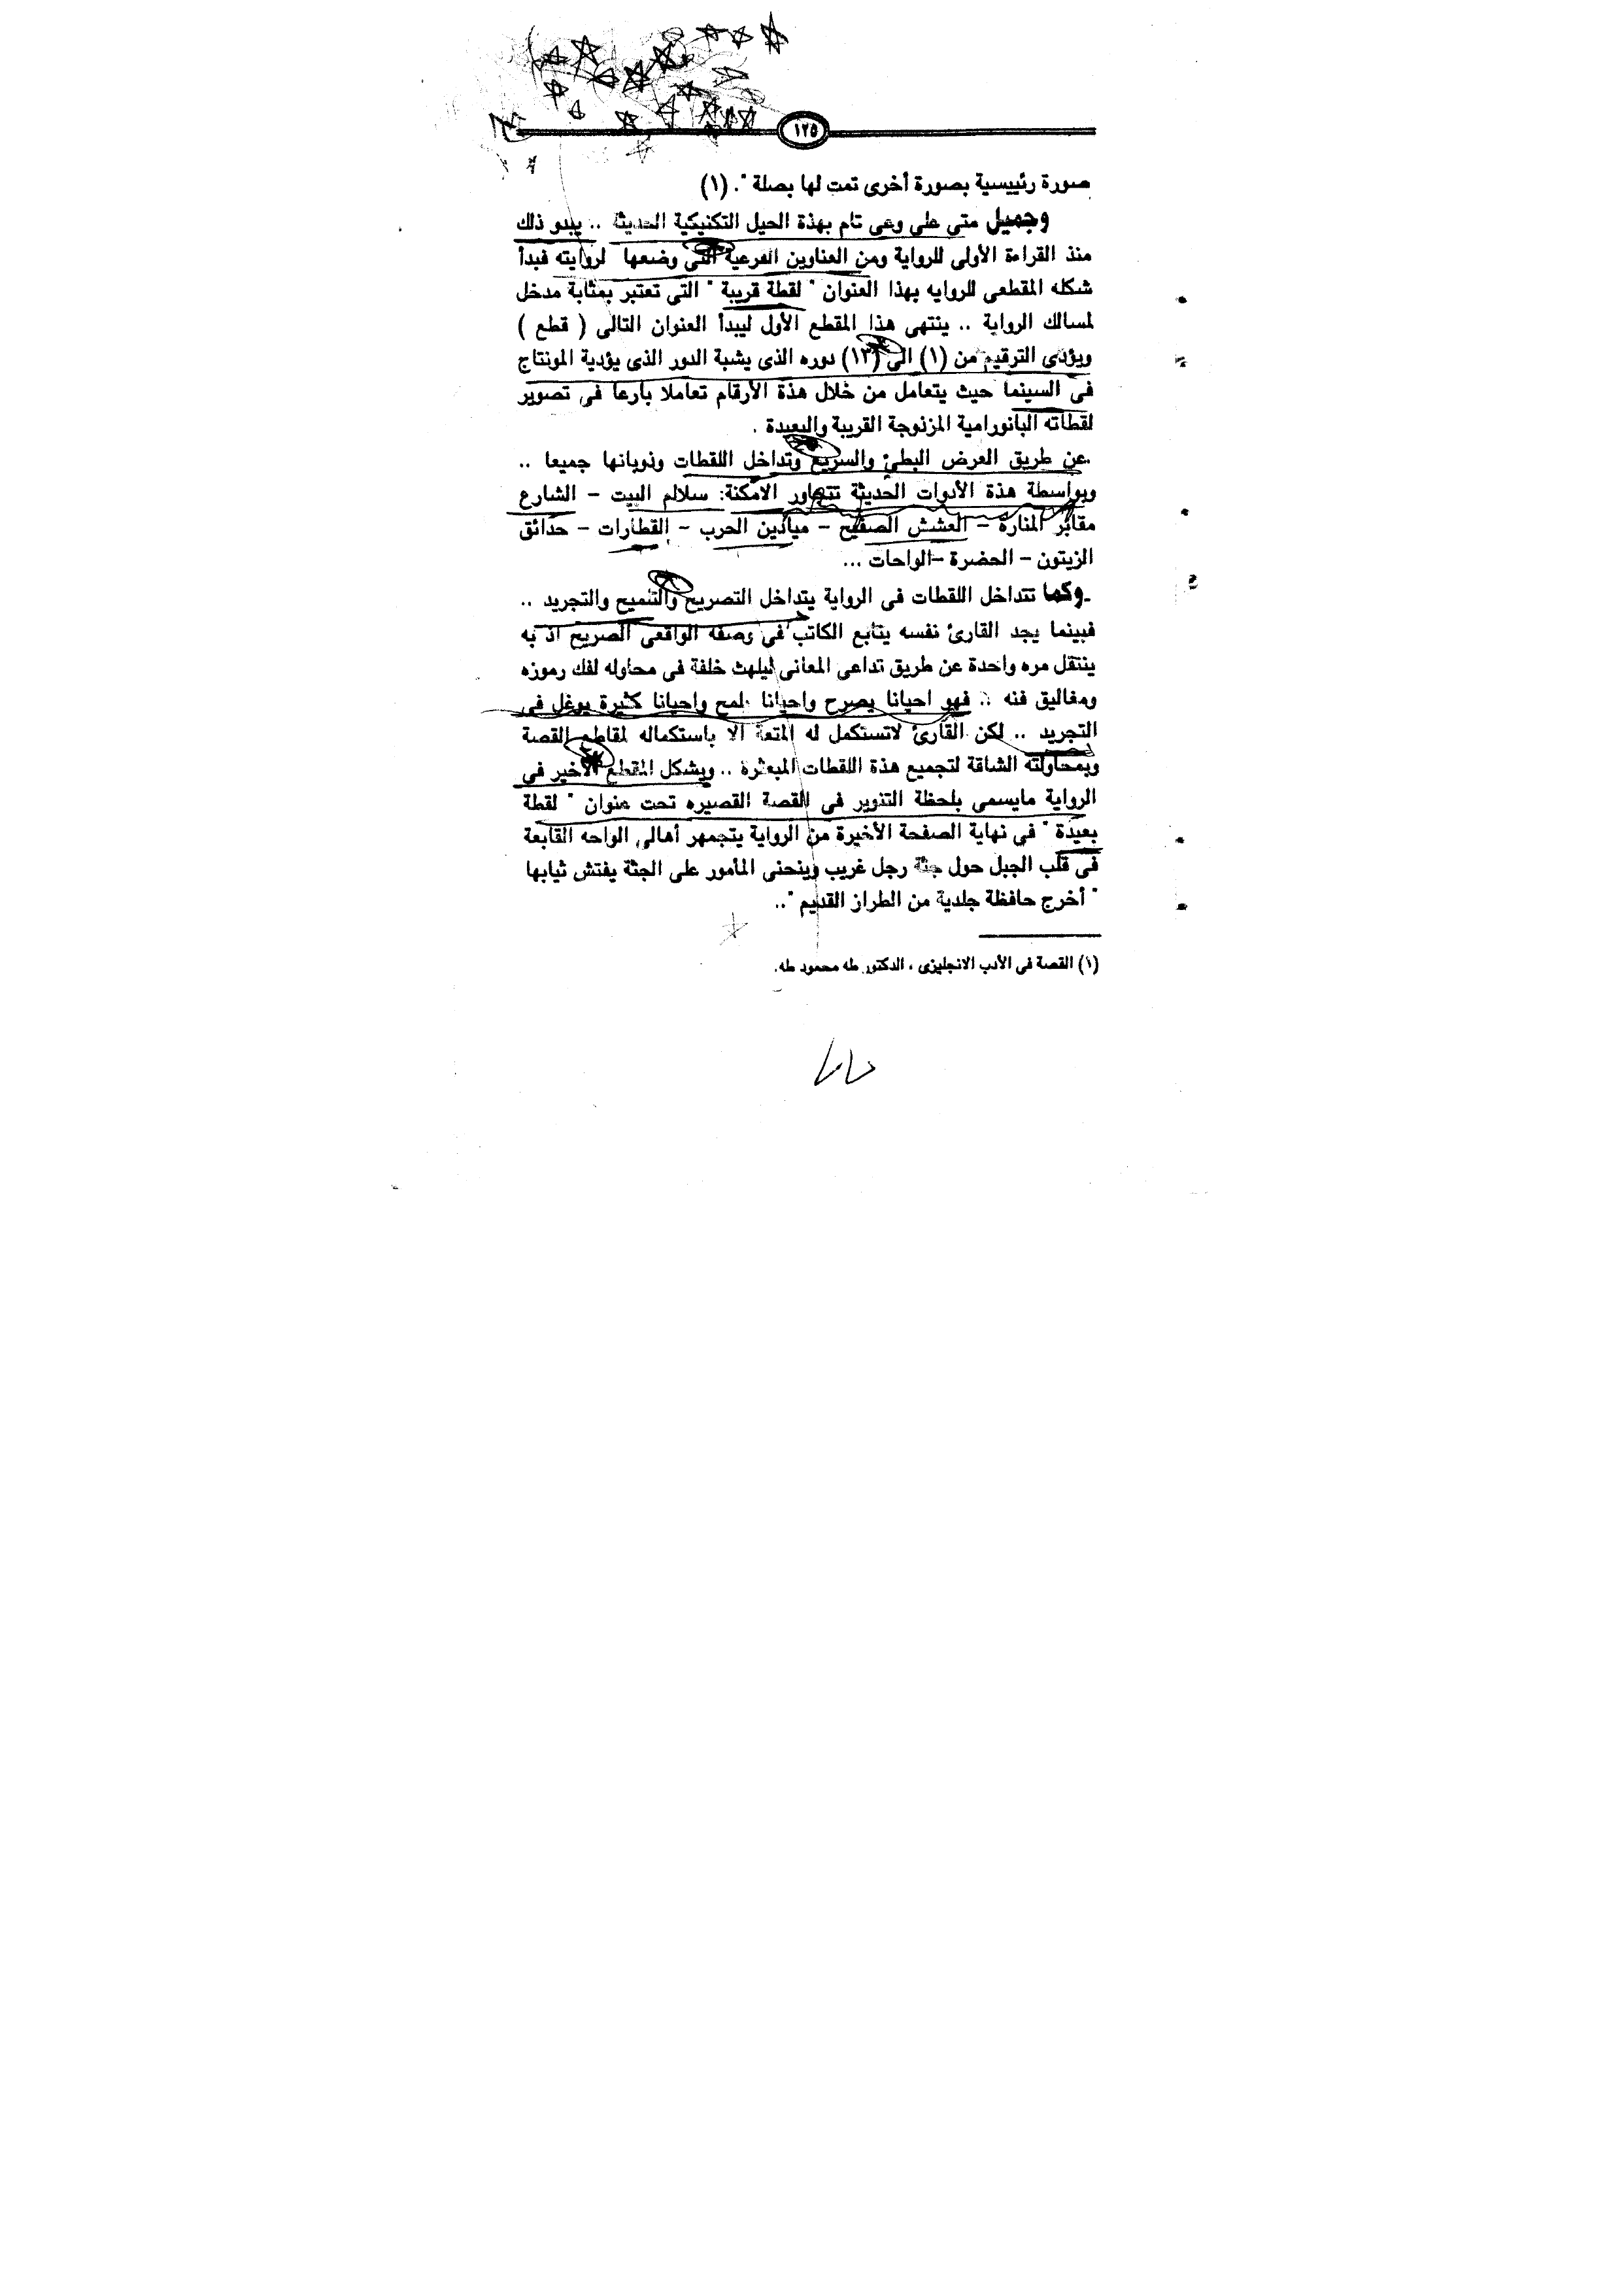 ١٢٥
صورة رئييسية بصورة أخرى تمت لها بصلة " . (١)
وجميل متى على وعى تام بهذة الحيل التكنيكية الحديثة .. يبدو ذلك
منذ القراءة الأولى للرواية ومن العناوين الفرعية التى وضعها لروايته فبدأ
شكله المقطعى للروايه بهذا العنوان " لقطة قريبة " التى تعتبر بمثابة مدخل
لمسالك الرواية .. ينتهى هذا المقطع الأول ليبدأ العنوان التالى ( قطع )
ويؤدى الترقيم من (١) الى (١٣) دوره الذى يشبة الدور الذى يؤدية المونتاج
فى السينما حيث يتعامل من خلال هذة الأرقام تعاملا بارعا فى تصوير
لقطاته البانورامية المزنوجة القريبة والبعيدة .
عن طريق العرض البطئ والسريع وتداخل اللقطات وذوبانها جميعا ..
وبواسطة هذة الأدوات الحديثة تتجاور الامكنة: سلالم البيت - الشارع
مقابر المنارة - العشش الصفيح - ميادين الحرب - القطارات - حدائق
الزيتون - الحضرة - الواحات ...
وكما تتداخل اللقطات فى الرواية يتداخل التصريح والتلميح والتجريد ..
فبينما يجد القارئ نفسه يتابع الكاتب فى وصفه الواقعى الصريح اذ به
ينتقل مره واحدة عن طريق تداعى المعانى ليلهث خلفة فى محاوله لفك رموزه
ومغاليق فنه .. فهو احيانا يصرح واحيانا يلمح واحيانا كثيرة يوغل فى
التجريد .. لكن القارئ لاتستكمل له المتعة الا باستكماله لمقاطع القصة
وبمحاولته الشاقة لتجميع هذة اللقطات المبعثرة .. ويشكل المقطع الأخير فى
الرواية مايسمى بلحظة التنوير فى القصة القصيره تحت عنوان " لقطة
بعيدة " فى نهاية الصفحة الأخيرة من الرواية يتجمهر أهالى الواحه القابعة
فى قلب الجبل حول جثة رجل غريب وينحنى المأمور على الجثة يفتش ثيابها
" أخرج حافظة جلدية من الطراز القديم " ..
(١) القصة فى الأدب الانجليزى ، الدكتور طه محمود طه.